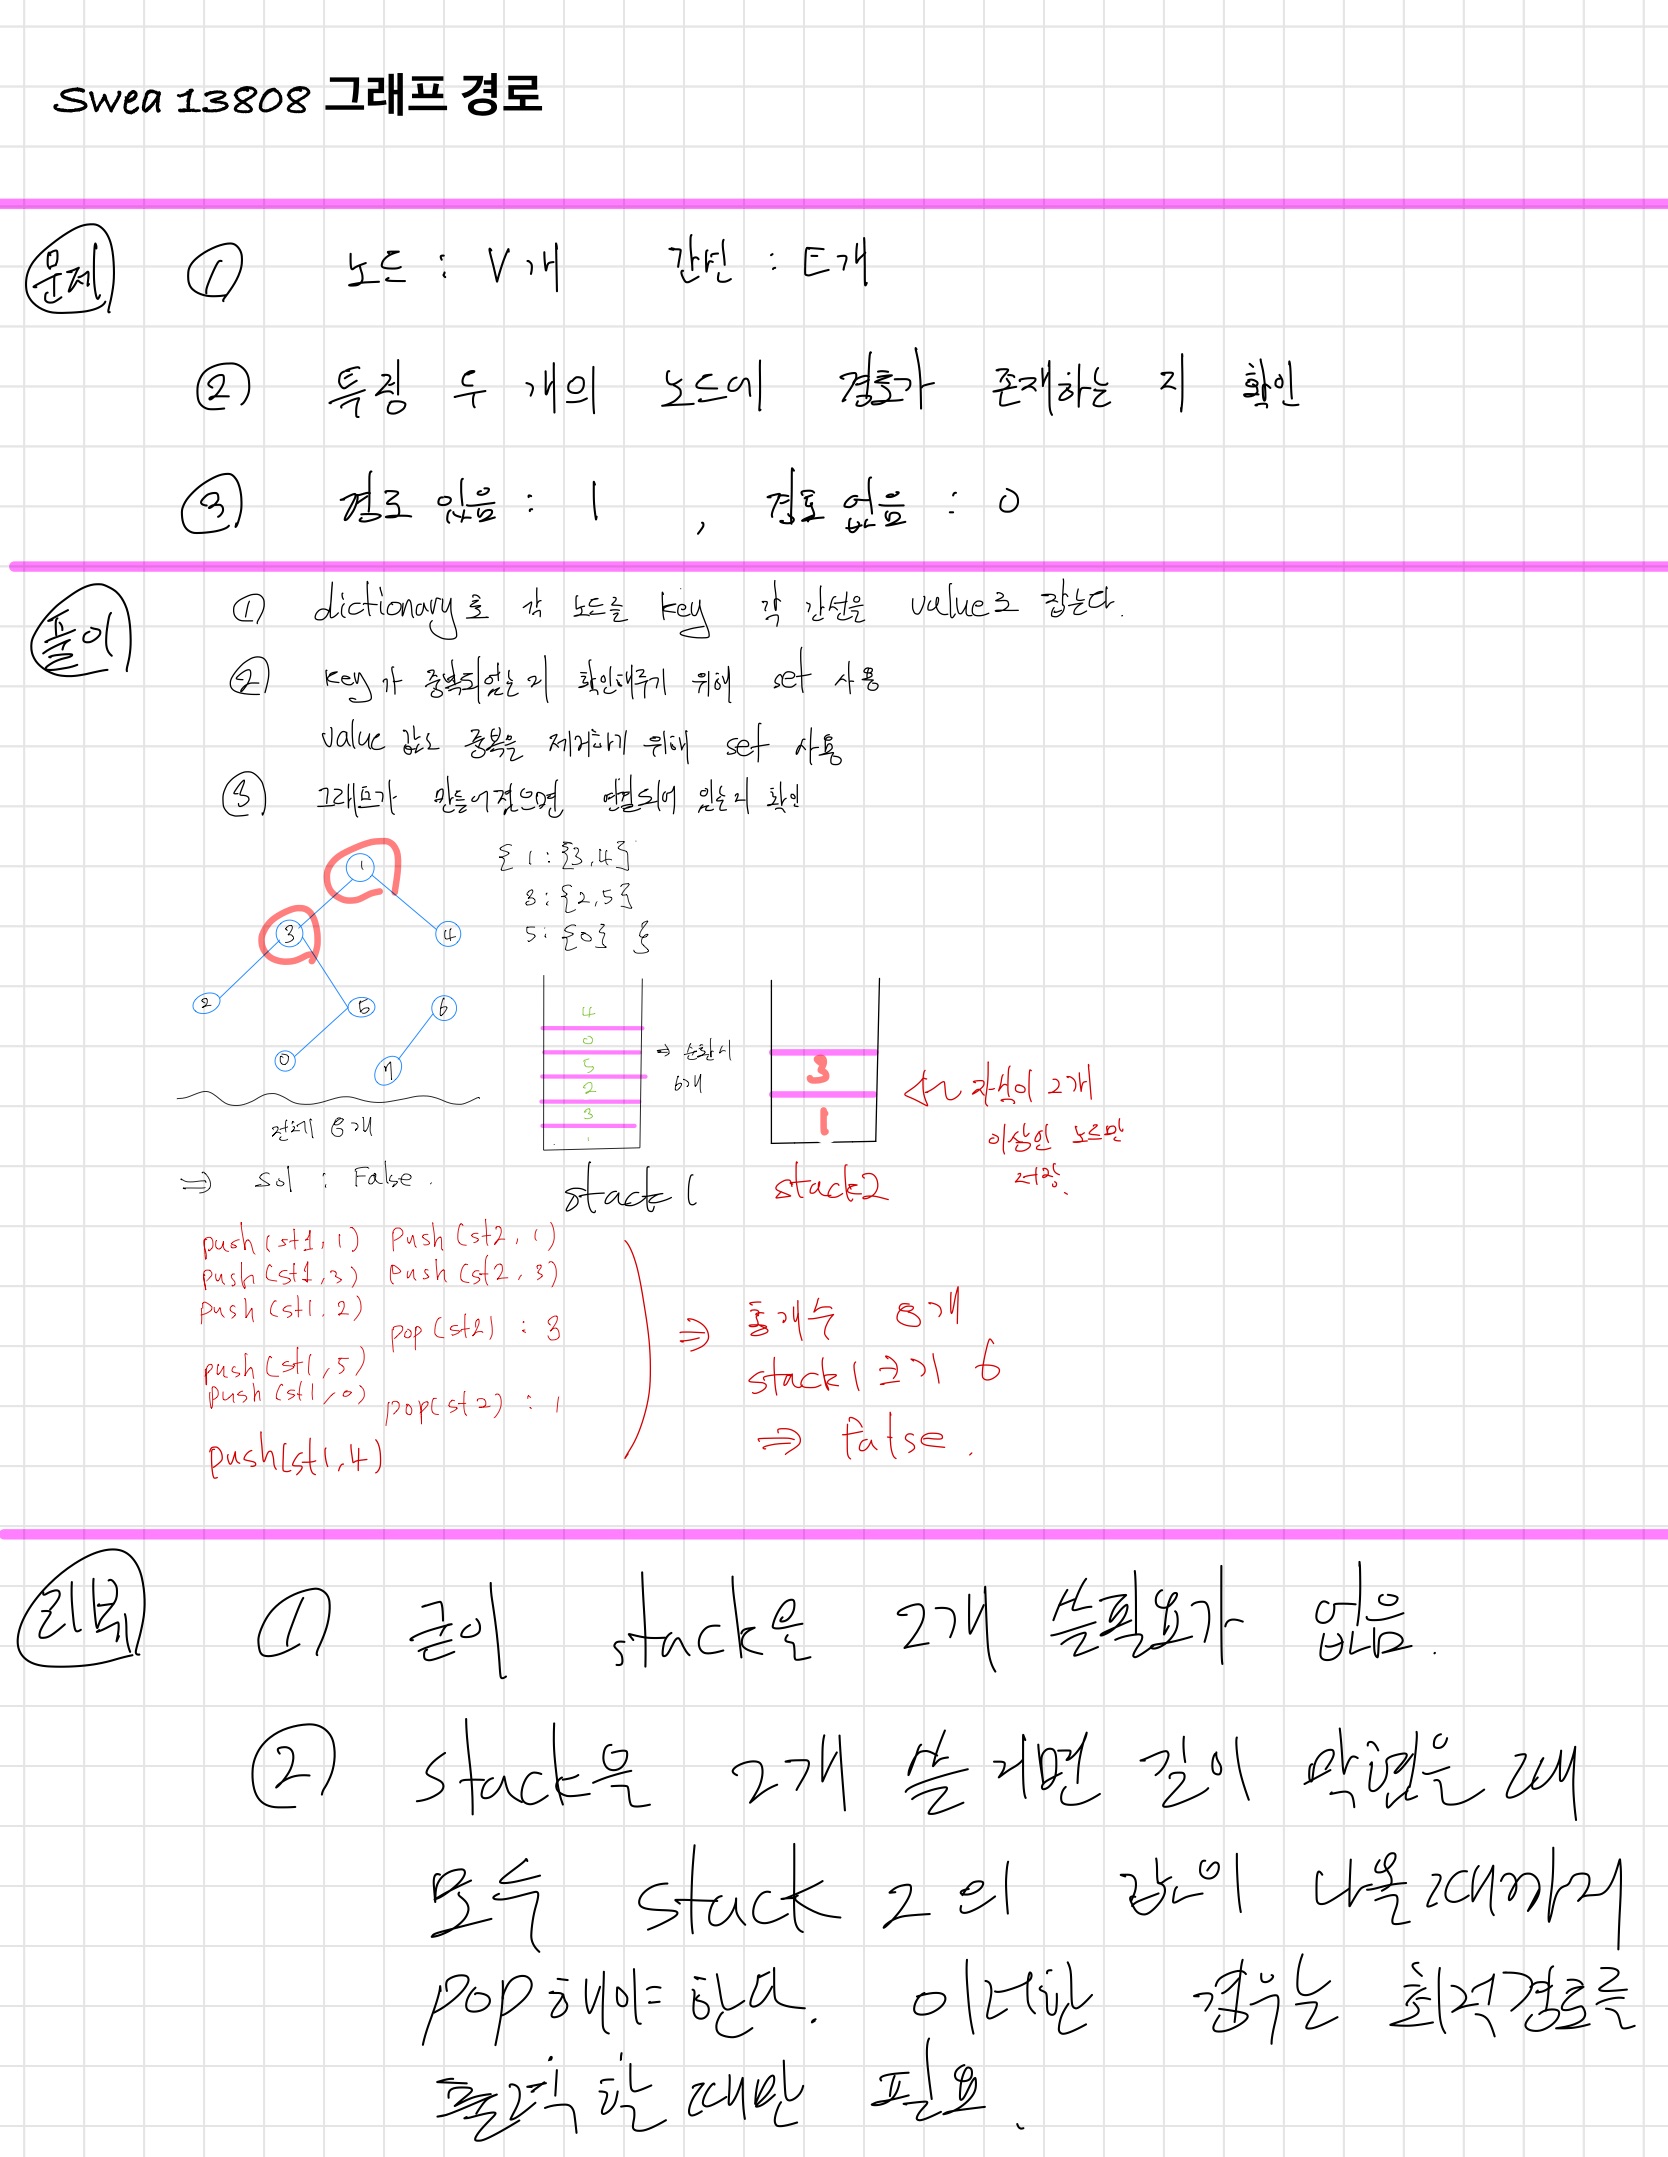 Swea 13808 그래프 경로
문제 ① 노드 : V개 간선 : E개
② 특정 두 개의 노드에 경로가 존재하는 지 확인
③ 경로 있음 : 1 , 경로 없음 : 0
풀이 ① dictionary로 각 노드를 key 각 간선을 value로 잡는다.
② key가 중복되었는지 확인해주기 위해 set 사용
value 값도 중복을 제거하기 위해 set 사용
③ 그래프가 만들어졌으면 연결되어 있는지 확인
{ 1 : {3,4}
3 : {2,5}
5 : {0} }
1
3
4
2
5
6
0
7
전체 8개
⇒ sol : False.
4
0
5
2
3
1
⇒ 순환시
6개
stack 1
3
1
stack2
자식이 2개
이상인 노드만
저장.
push(st1,1) push(st2,1)
push(st1,3) push(st2,3)
push(st1,2)
pop(st2) : 3
push(st1,5)
push(st1,0)
pop(st2) : 1
push(st1,4)
⇒ 총개수 8개
stack1 크기 6
⇒ false.
리뷰 ① 굳이 stack을 2개 쓸필요가 없음.
② stack을 2개 쓸 거면 길이 막혔을 때
모두 stack2의 값이 나올때까지
pop해야 한다. 이러한 경우는 최적경로를
출력할 때만 필요.